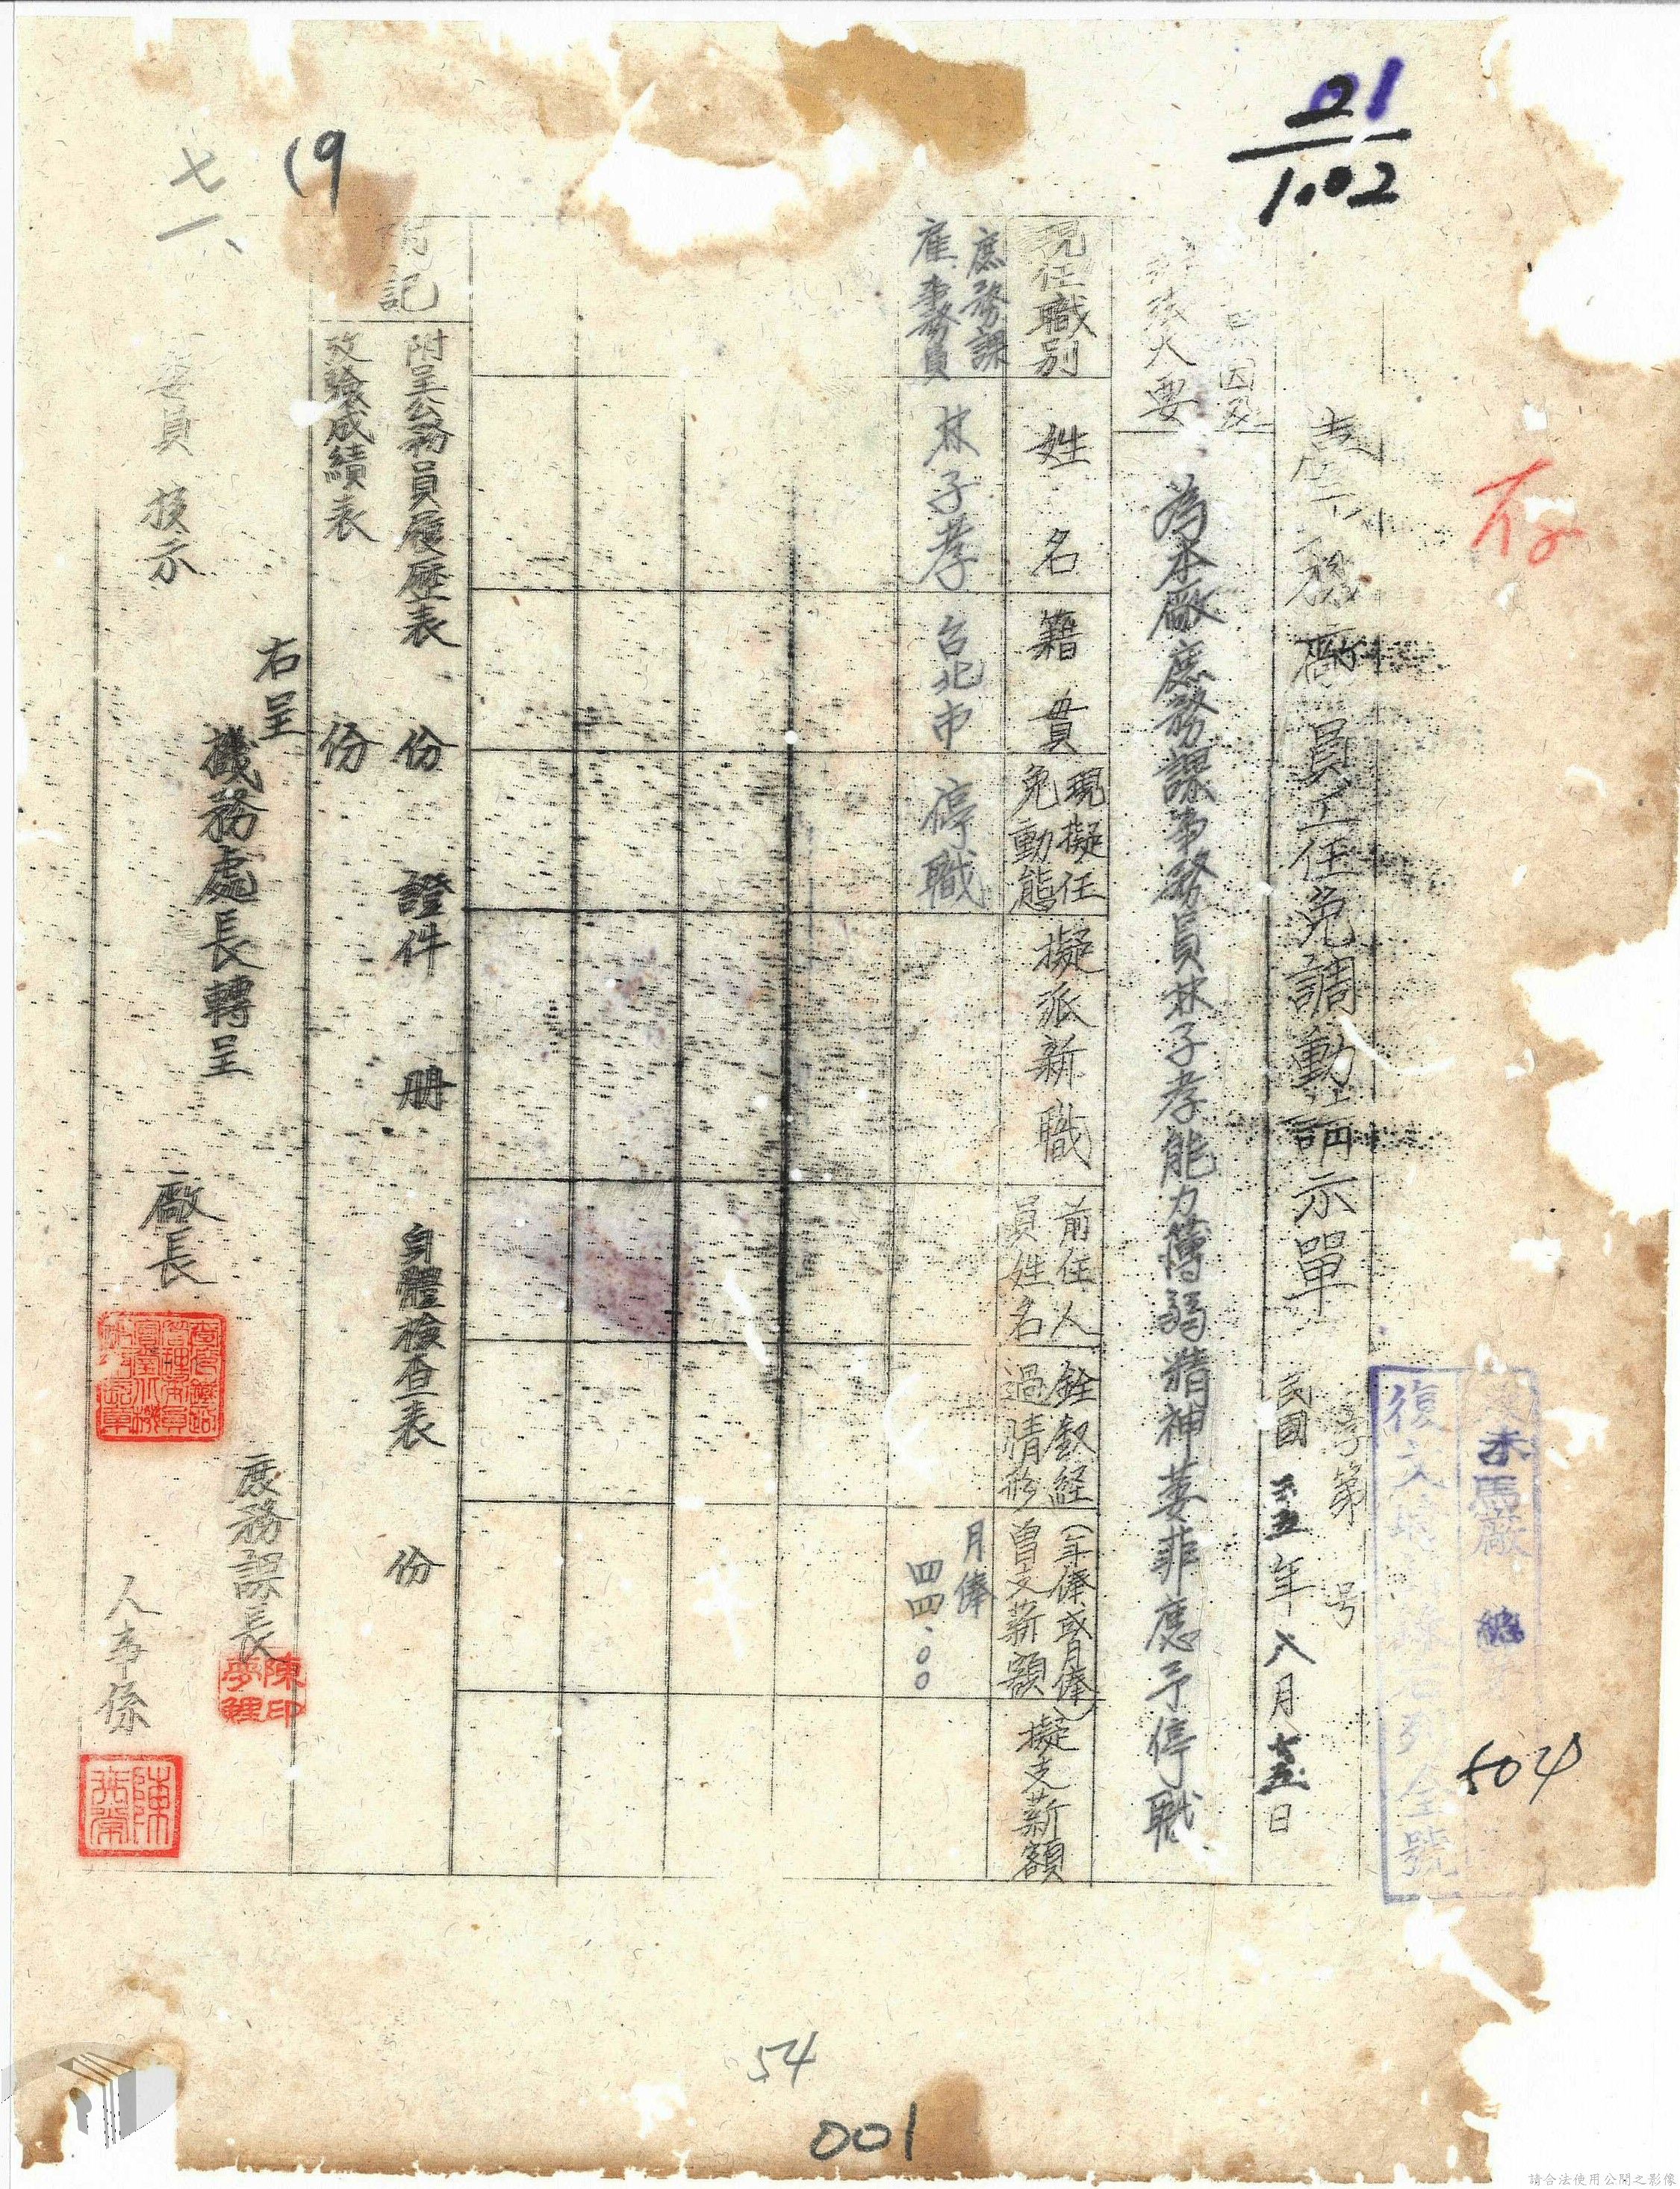 21
1.02
19
七
一、
存
廠員工任免調動請示單
字第 号
民國三五年八月十五日
原因及
大要
為本廠庶務課事務員林子孝能力薄弱精神萎靡應予停職
現任職別
姓名
籍貫
現擬任
免動態
擬派新職
前任人
員姓名
銓敘経
過情形
(年俸或月俸)
曾支薪額
擬支薪額
庶務課
雇事務員
林子孝
台北市
停職
月俸
四四.〇〇
附記
附呈公務員履歷表 份 證件 册 身體檢查表 份
攷驗成績表 份
右呈
機務處長轉呈
委員 核示
廠長
庶務課長
陳印
夢鯉
人事係
復文請 號
廠 總
504
54
001
請合法使用公開之影像